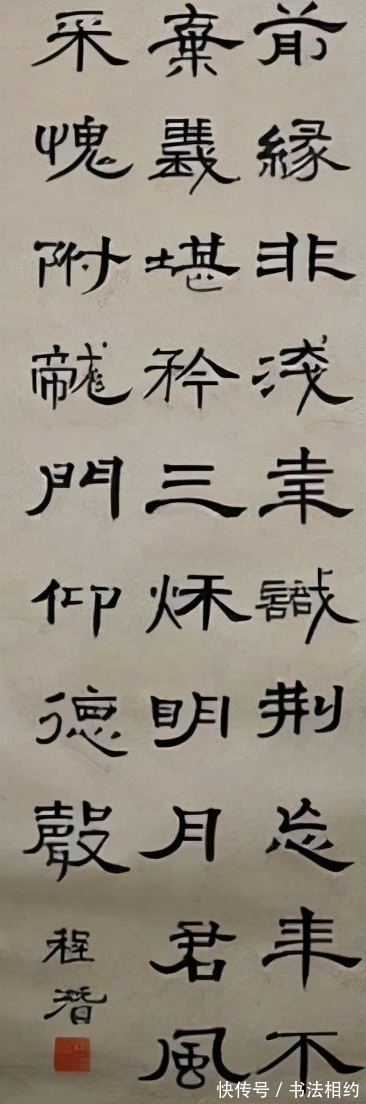 前緣非淺幸識荊忘年不
棄義堪矜三秌明月君風
采愧附龍門仰德聲
程潛
快传号 / 书法相约